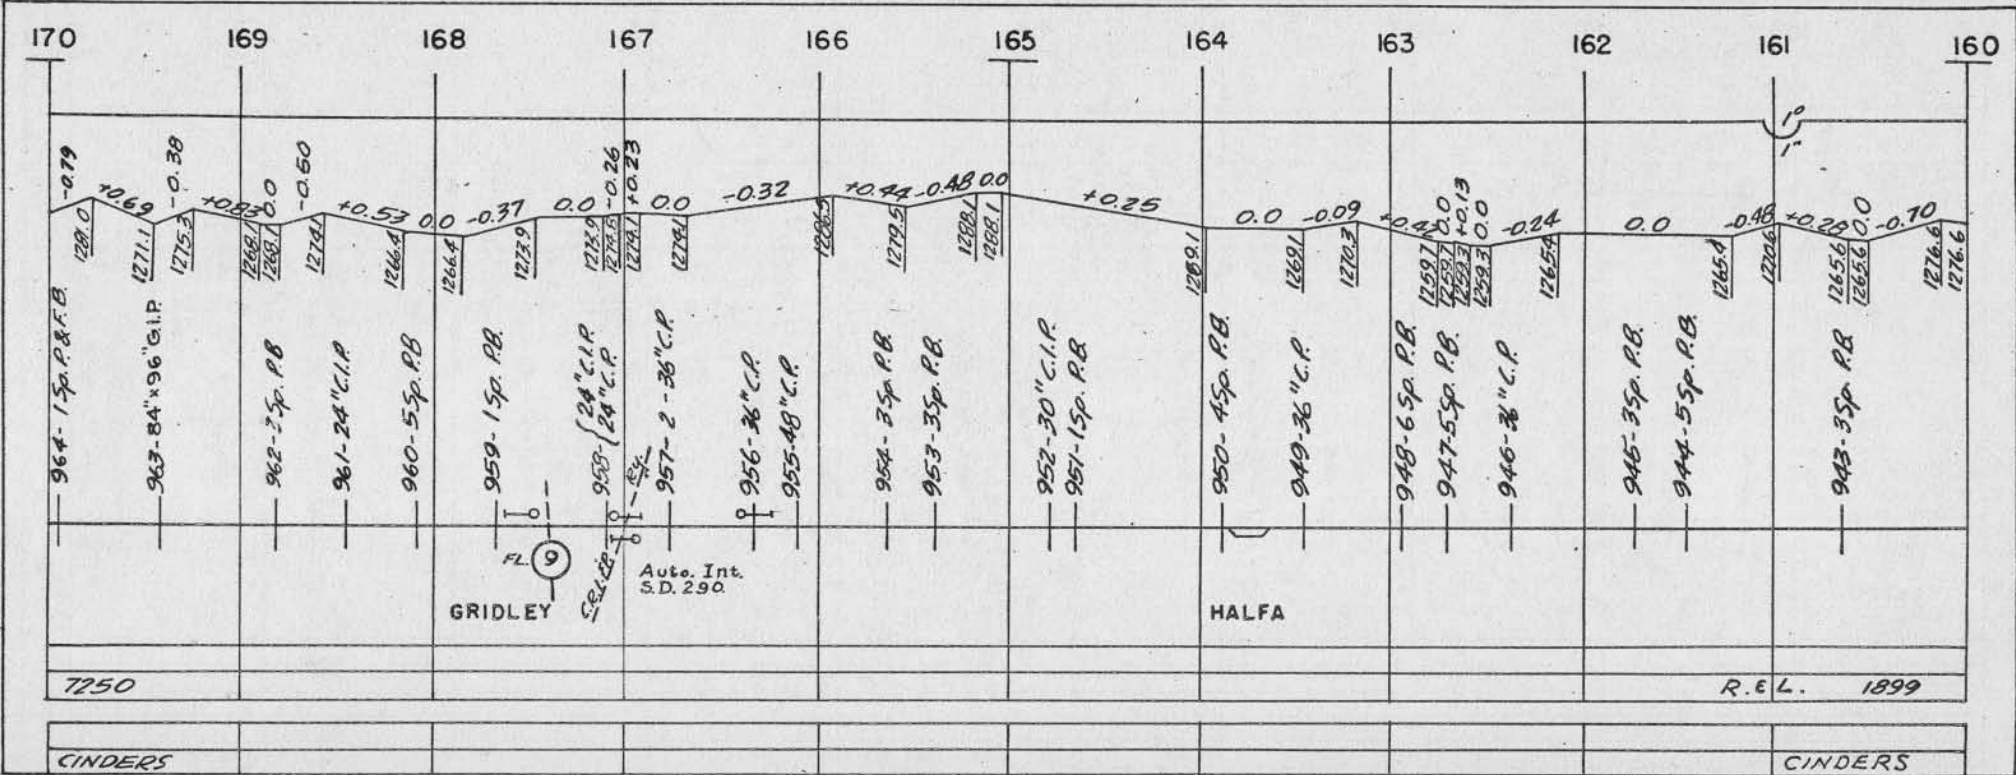 170 169 168 167 166 165 164 163 162 161 160
1°
1°
-0.79 +0.69 -0.38 +0.83 0.0 -0.50 +0.53 0.0 -0.37 0.0 -0.26 +0.23 0.0 -0.32 +0.44 -0.48 0.0 +0.25 0.0 -0.09 0.0 +0.13 0.0 -0.24 0.0 -0.48 +0.28 0.0 -0.70
1281.0 1271.1 1275.3 1268.1 1268.1 1274.1 1266.4 1266.4 1273.9 1273.9 1274.1 1274.1 1279.5 1288.1 1288.1 1269.1 1269.1 1270.3 1259.7 1259.7 1259.3 1259.3 1265.4 1265.4 1265.6 1265.6 1276.6 1276.6
964-1 Sp. P.& F.B.
963-84"x96"G.I.P.
962-2 Sp. P.B
961-24"C.I.P.
960-5 Sp. P.B
959-1 Sp. P.B.
958-{24"C.I.P.
24"C.P.
957-2-36"C.P.
956-36"C.P.
955-48"C.P.
954-3 Sp. P.B.
953-3 Sp. P.B.
952-30"C.I.P.
951-1 Sp. P.B.
950-4 Sp. P.B.
949-36"C.P.
948-6 Sp. P.B.
947-5 Sp. P.B.
946-36"C.P.
945-3 Sp. P.B.
944-5 Sp. P.B.
943-3 Sp. P.B.
FL. 9
Auto. Int.
S.D. 290
GRIDLEY
HALFA
7250
R. & L. 1899
CINDERS CINDERS